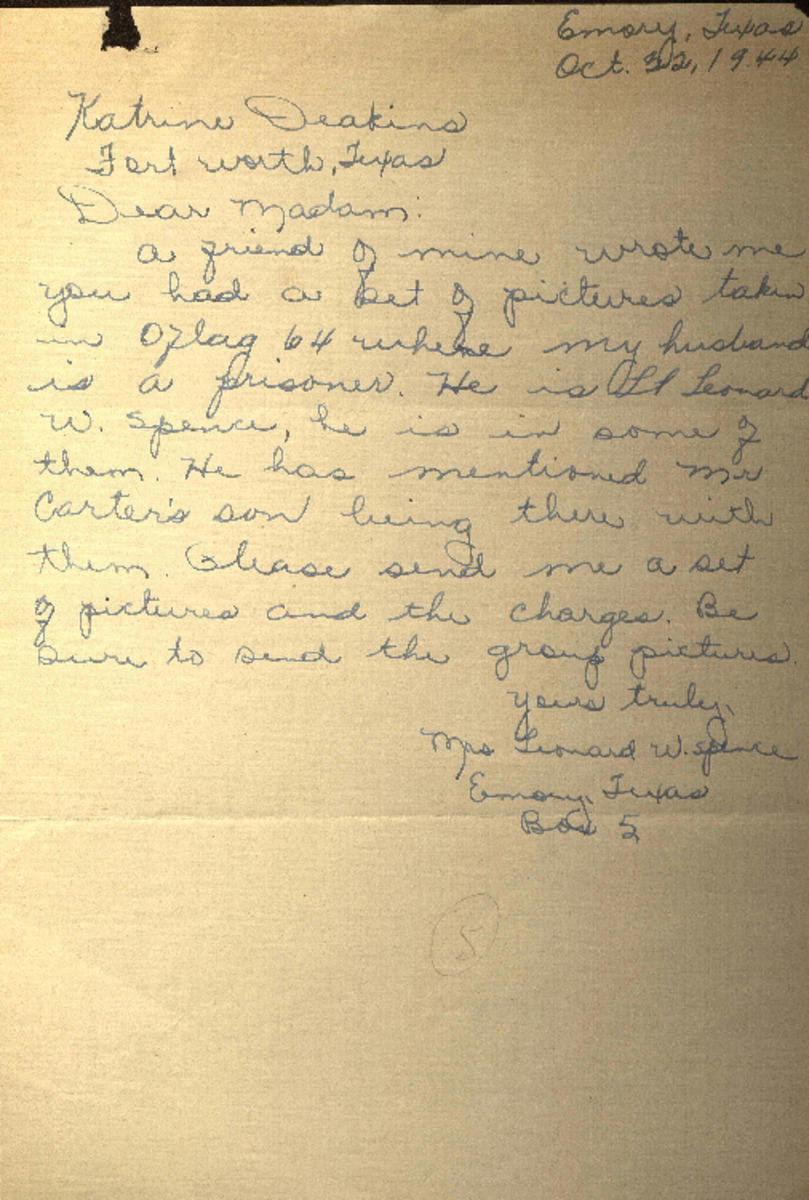 Emory, Texas
Oct. 22, 1944
Katrine Deakins
Fort worth, Texas
Dear Madam:
a friend of mine wrote me
you had a set of pictures taken
in Oflag 64 where my husband
is a prisoner. He is Lt Leonard
W. Spence, he is in some of
them. He has mentioned Mr
Carter's son being there with
them. Please send me a set
of pictures and the charges. Be
sure to send the group pictures.
yours truly,
Mrs Leonard W. Spence
Emory, Texas
Box 5
5